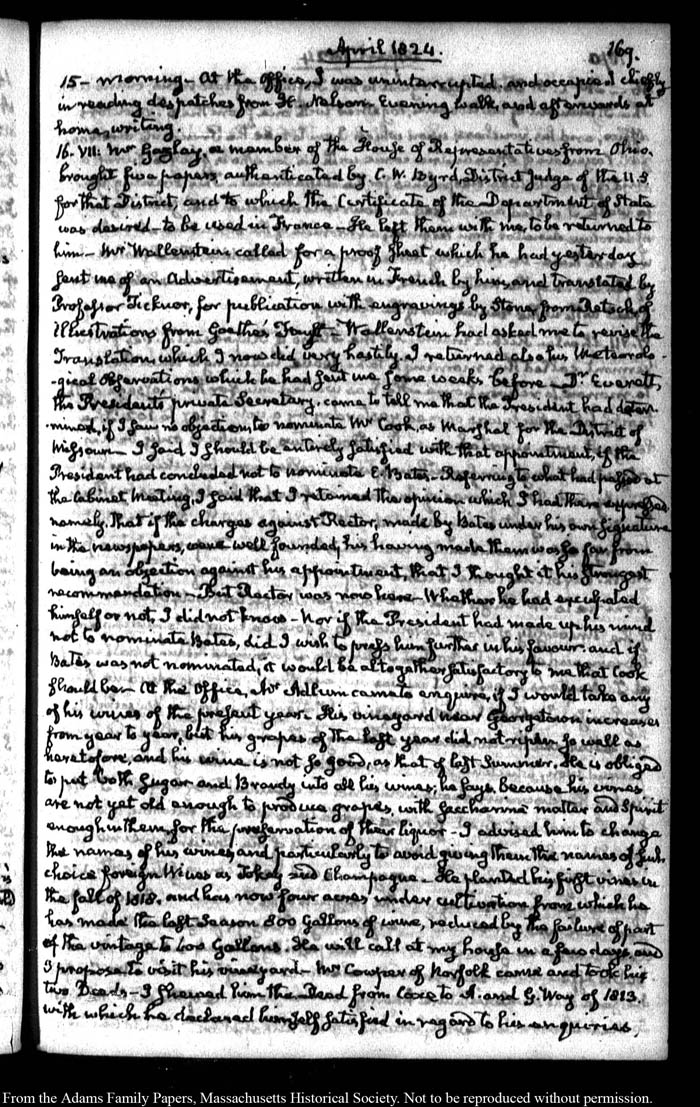 April 1824.
169.
15 – morning – At the Office, I was uninterrupted, and occupied chiefly
in reading despatches from H. Nelson. Evening walk, and afterwards at
home, writing.
16. VII: Mr Gazlay, a member of the House of Representatives from Ohio,
brought five papers, authenticated by C. W. Byrd, District Judge of the U.S
for that District, and to which the Certificate of the Department of State
was desired – to be used in France – He left them with me, to be returned to
him – Mr Wallenstein called for a proof sheet, which he had yesterday
sent me of an Advertisement, written in French by him, and translated by
Professor Ticknor, for publication with engravings by Stone, from Retsch, of
Illustrations from Goethe's Faust – Wallenstein had asked me to revise the
Translation, which I now did very hastily. I returned also his Meteorolo-
-gical Observations which he had sent me some weeks before. Dr Everett,
the President's private Secretary, came to tell me that the President had deter-
-mined, if I saw no objection to nominate Mr Cook, as Marshal for the District of
Missouri – I said I should be entirely satisfied with that appointment, if the
President had concluded not to nominate E. Bates – Referring to what had passed at
the Cabinet Meeting, I said that I retained the opinion which I had there expressed,
namely, That if the charges against Rector, made by Bates under his own signature
in the newspapers, were well founded, his having made them was so far from
being an objection against his appointment, that I thought it his strongest
recommendation – But Rector was now here – Whether he had exculpated
himself or not, I did not know – Nor if the President had made up his mind
not to nominate Bates, did I wish to press him further in his favour: and if
Bates was not nominated, it would be altogether satisfactory to me that Cook
should be – At the Office, Mr Adlum came to enquire, if I would take any
of his wines of the present year. His vineyard near Georgetown increases
from year to year, but his grapes of the last year did not ripen so well as
heretofore, and his wine is not so good, as that of last Summer. He is obliged
to put both Sugar and Brandy into all his wines; he says, because his vines
are not yet old enough to produce grapes, with saccharine matter and Spirit
enough in them, for the preservation of their liquor – I advised him to change
the names of his wines, and particularly to avoid giving them the names of such
choice foreign Wines as Tokay and Champagne – He planted his first vines in
the fall of 1818. and has now four acres under cultivation from which he
has made the last Season 800 Gallons of wine, reduced by the failure of part
of the vintage to 400 Gallons. He will call at my house in a few days, and
I propose to visit his vineyard – Mr Cowper of Norfolk came and took his
two Deeds – I shewed him the Deed from Coxe to A. and G. Way of 1813.
with which he declared himself satisfied in regard to his enquiries,
From the Adams Family Papers, Massachusetts Historical Society. Not to be reproduced without permission.